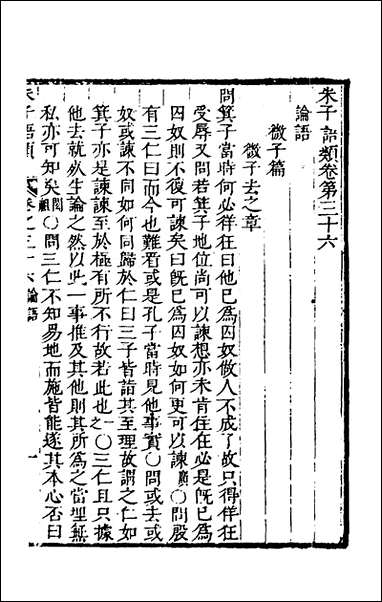 朱子語類卷第三十六
論語
微子篇
微子去之章
問箕子當時何必佯狂曰他已爲囚奴做人不成了故只得佯狂
受辱又問若箕子地位尚可以諫想亦未肯住在必是旣已爲
囚奴則不復可諫矣曰旣已爲囚奴如何更可以諫廣○問殷
有三仁曰而今也難看或是孔子當時見他事實○問或去或
奴或諫不同如何同歸於仁曰三子皆詣其至理故謂之仁如
箕子亦是諫諫至於極有所不行故若此也之○三仁且只據
他去就死生論之然以此一事推及其他則其所爲之當理無
私亦可知矣閎祖○問三仁不知易地而施皆能遂其本心否曰
朱子語類 卷之三十六 論語 一